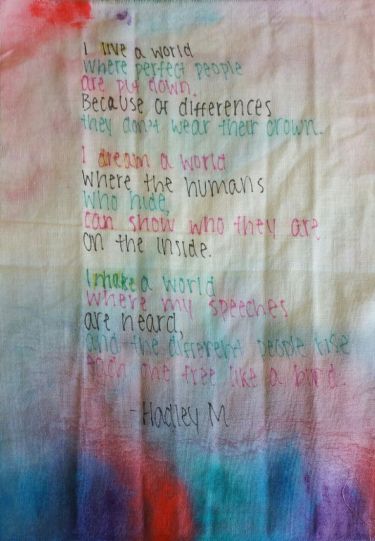 I live a world
where perfect people
are put down.
Because of differences
they don't wear their crown.
I dream a world
where the humans
who hide,
can show who they are
on the inside.
I make a world
where my speeches
are heard,
and the different people rise
each one free like a bird.
-Hadley M